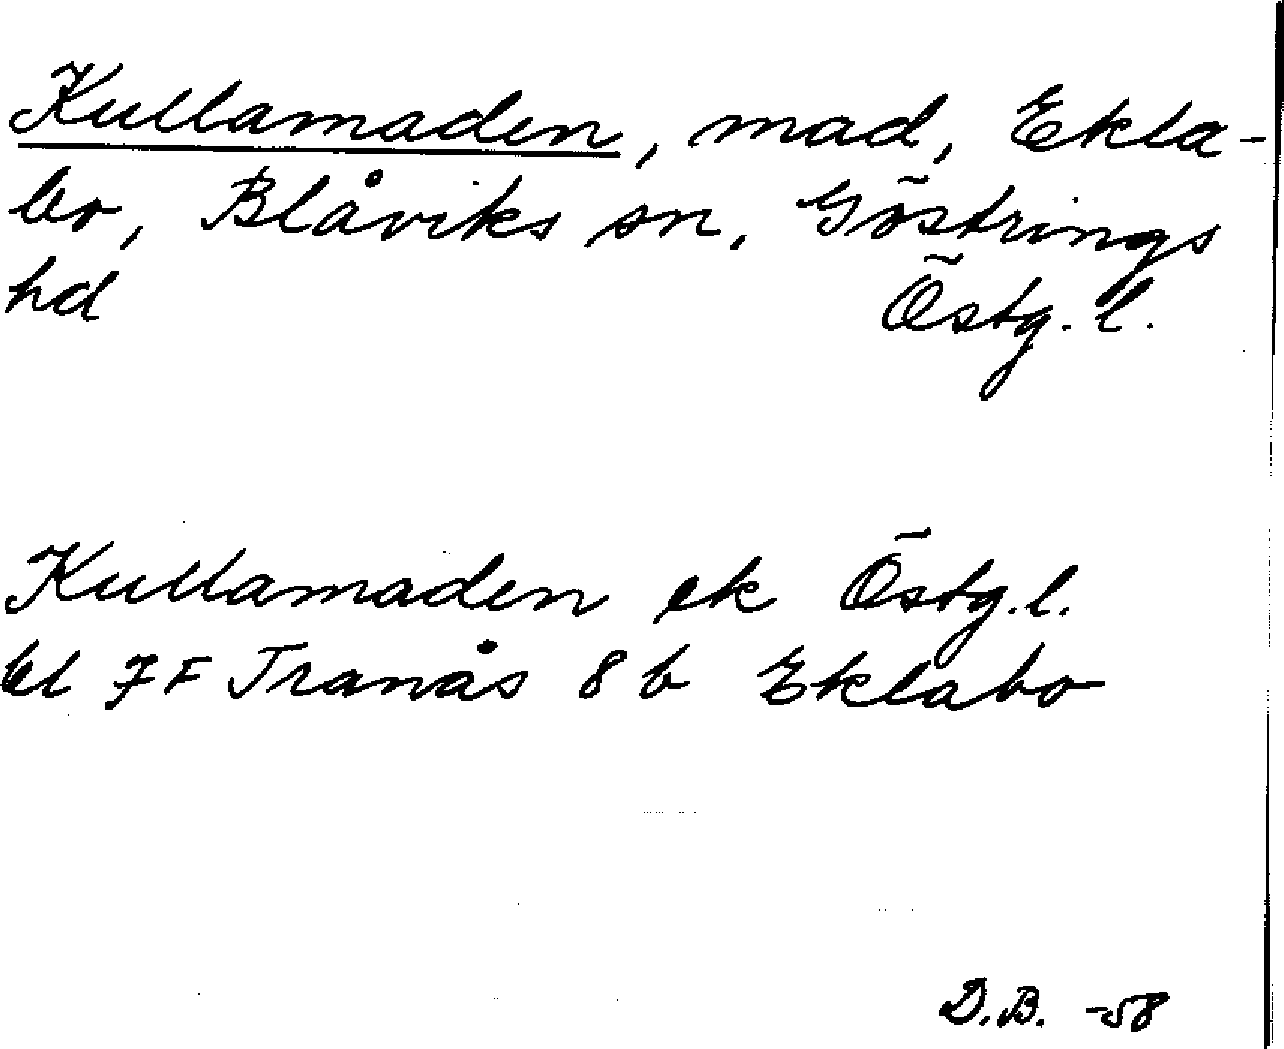 Kullamaden, mad, Ekla-
bo, Blåviks sn, Göstrings
hd Östg. l.
Kullamaden ek Östg. l.
bl 7F Tranås 8 b Eklabo
D.B. -58